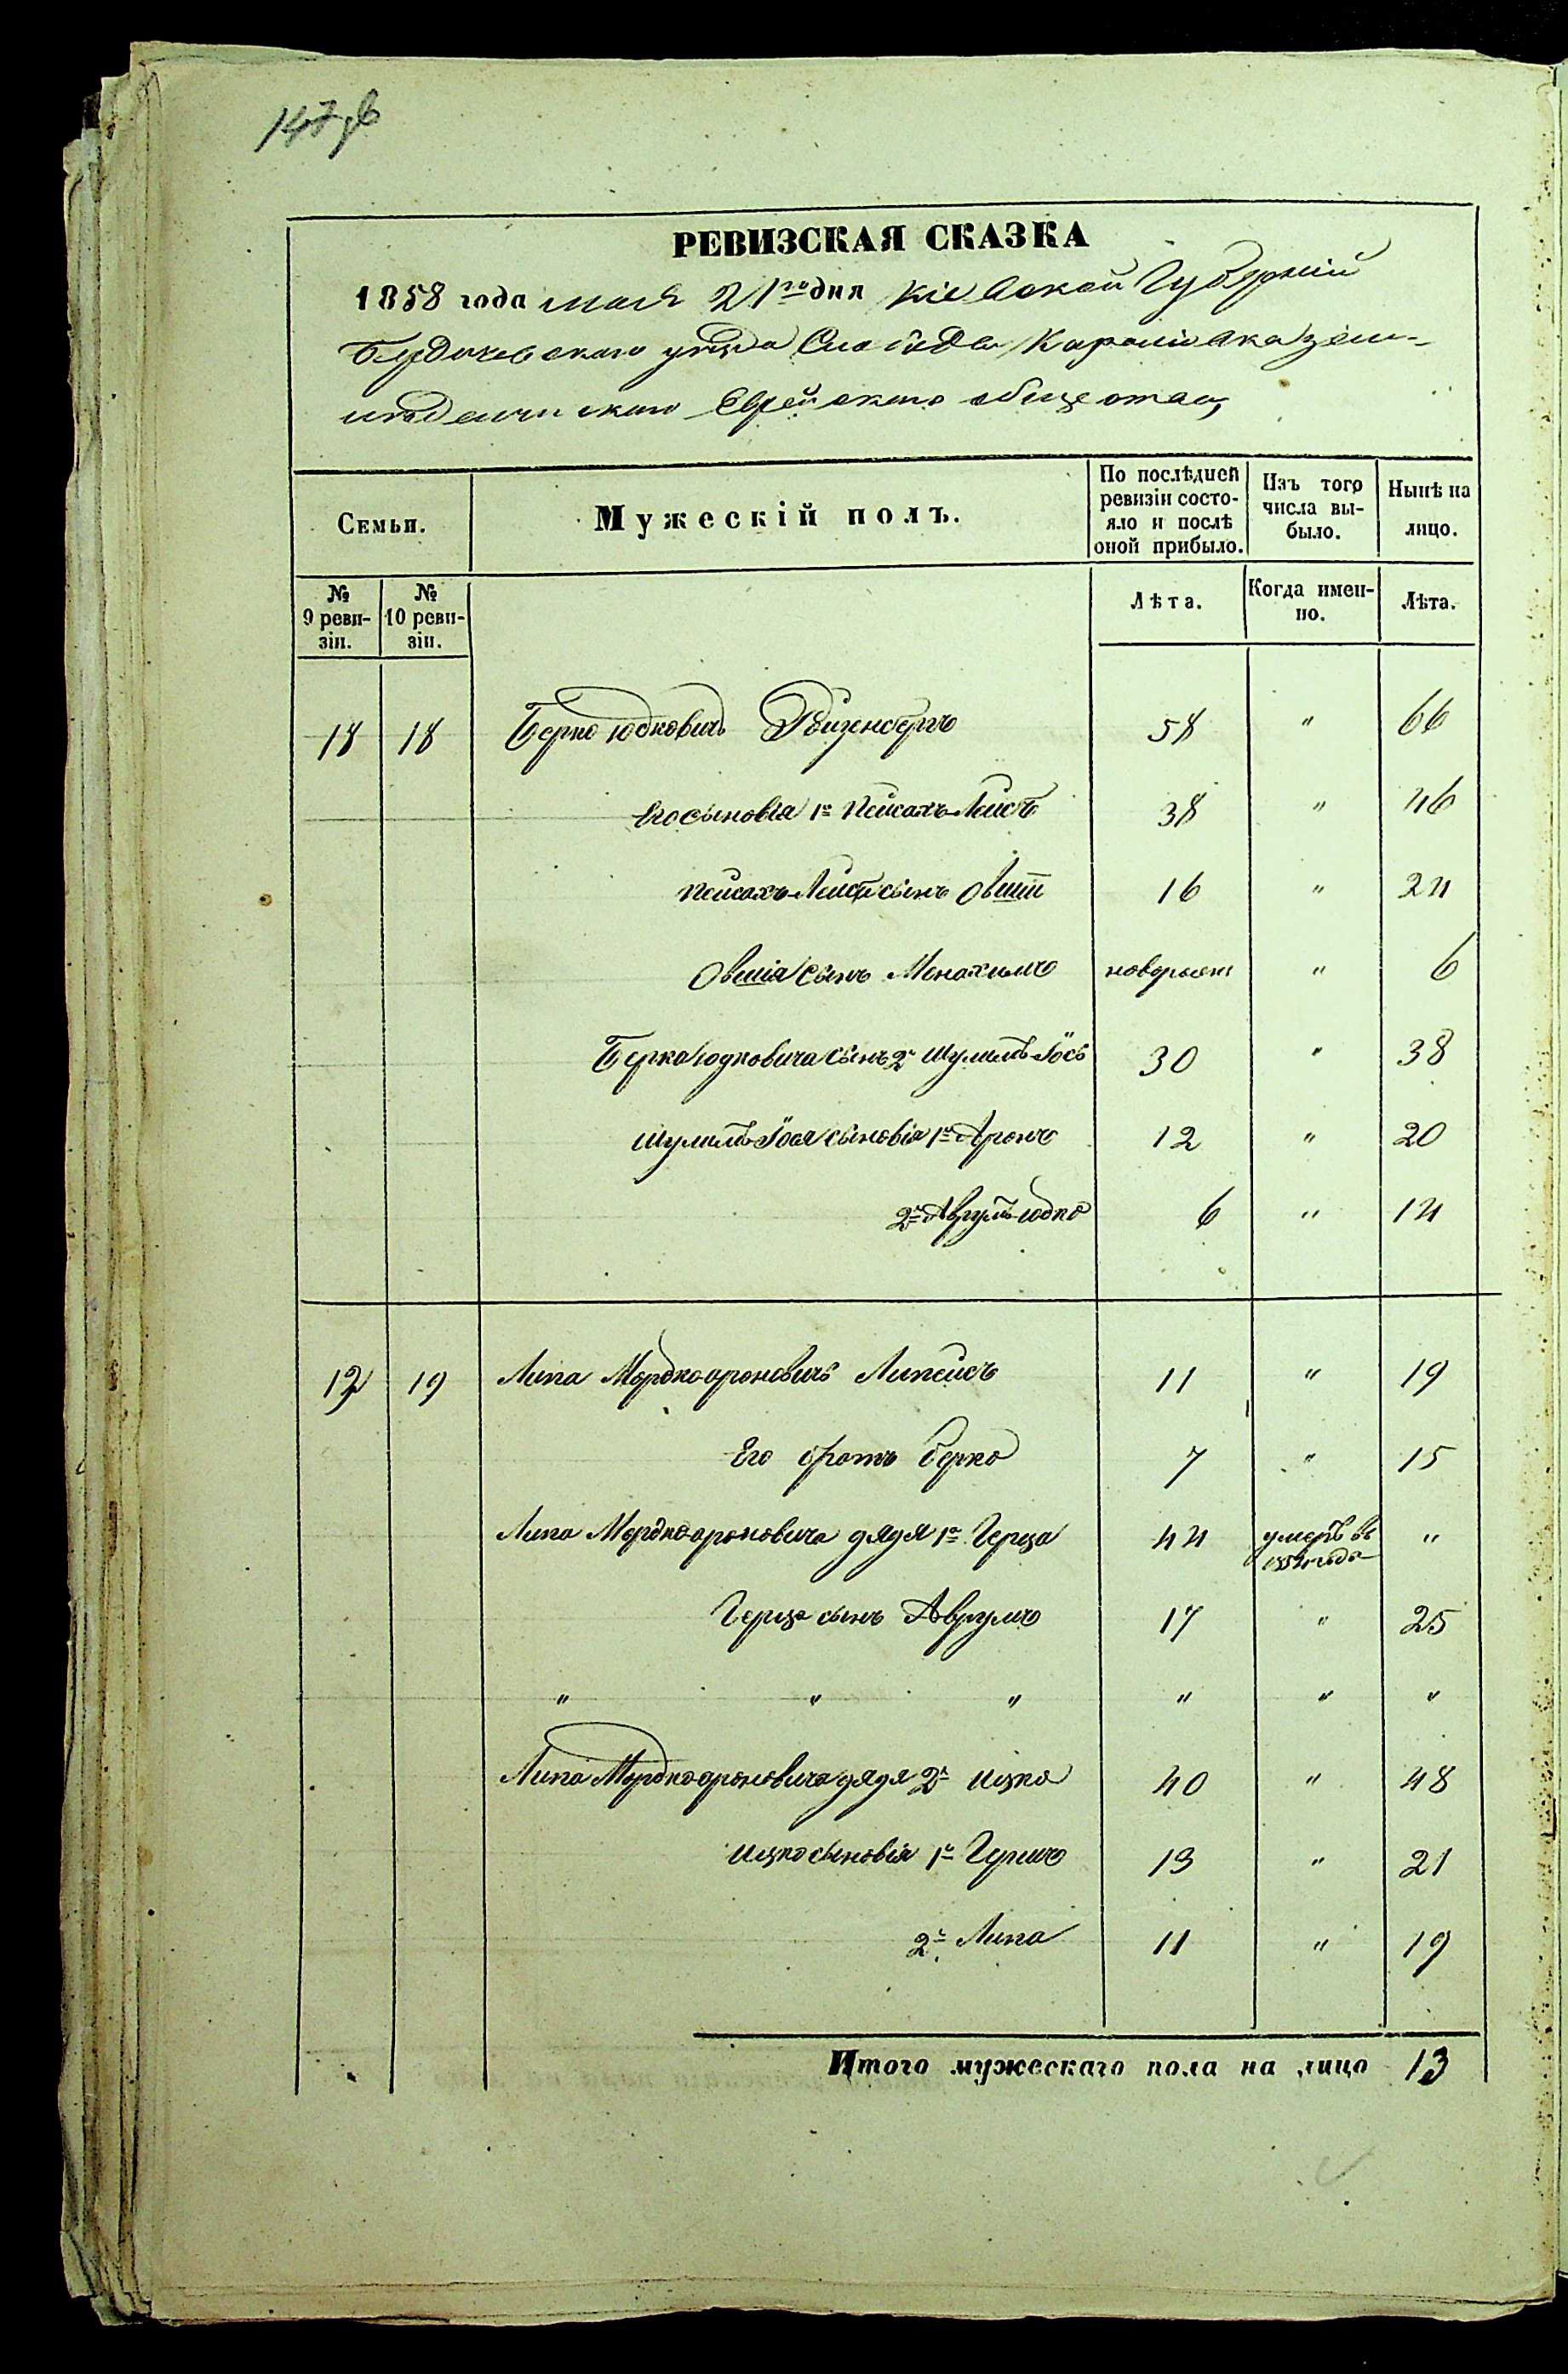 РЕВИЗСКАЯ СКАЗКА
1858 года мая 21го дня Кіевской Губерніи
Бердичевскаго уѣзда Слобода
Еврейскаго общества,
Семьи.
Мужескій полъ.
По послѣдней ревизіи состояло и послѣ оной прибыло.
Изъ того числа выбыло.
Нынѣ на лицо.
№ 9 ревизіи.
№ 10 ревизіи.
Лѣта.
Когда именно.
Лѣта.
18 18 Берко Юдковичъ 58 " 66
Его сыновія 1й Пейсахъ-Лейбъ 38 " 46
Пейсахъ-Лейба сынъ Овшій 16 " 24
Овшія сынъ Менахимъ новорожден " 6
Берка Юдковича сынъ 2й Шулимъ-Іось 30 " 38
Шулимъ-Іося сыновія 1й Аронъ 12 " 20
2й Аврумъ-Юдко 6 " 14
12 19 Липа Мордко-Ароновичъ Липсисъ 11 " 19
Его братъ Берко 7 " 15
Липа Мордко-Ароновича дядя 1й Герцъ 44 умеръ въ года "
Герца сынъ Аврумъ 17 " 25
" " " " " "
Липа Мордко-Ароновича дядя 2й Ицко 40 " 48
Ицко сыновія 1й Гершъ 13 " 21
2й Липа 11 " 19
Итого мужескаго пола на лицо 13